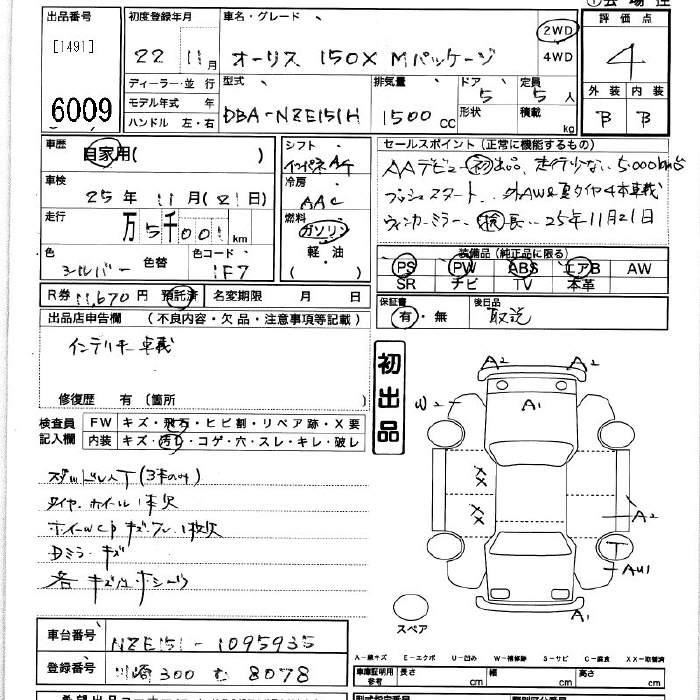 出品番号
[1491]
6009
初度登録年月
22 11月
車名・グレード
オーリス 150X Mパッケージ
2WD
4WD
評価点
4
外装 内装
B B
ディーラー・並行
モデル年式 年
ハンドル 左・右
型式
DBA-NZE151H
排気量
1500 cc
ドア
5
形状
定員
5 人
積載
kg
車歴
自家用( )
車検
25年 11月(21日)
走行
万 5千001 km
色
シルバー
色替
色コード
1F7
シフト
インパネAT
冷房
AAC
燃料
ガソリン
軽・油
( )
セールスポイント(正常に機能するもの)
AAデビュー 初出品、走行少ない 5,000km台
プッシュスタート、外AW&夏タイヤ4本車載
ウィンカーミラー、検長い 25年11月21日
装備品(純正品に限る)
PS PW ABS エアB AW
SR ナビ TV 本革
R券 11,670円 預託済
名変期限 月 日
保証書
有・無
後日品
取説
出品店申告欄 (不良内容・欠品・注意事項等記載)
インテリキー車載
修復歴 有(箇所
初出品
検査員
記入欄
FW キズ・飛石・ヒビ割・リペア跡・X要
内装 キズ・汚れ・コゲ・穴・スレ・キレ・破レ
スタッドレスT(3本のみ)
タイヤ・ホイール1本欠
ホイールCP キズ・ワレ 1枚欠
Dミラーキズ
A2 A2
W2
A1
XX
XX
A2
T
AU1
A1
スペア
車台番号
NZE151-1095935
登録番号
川崎 300 む 8078
A-線キズ E-エクボ U-凹み W-補修跡 S-サビ C-腐食 XX-取替済
車庫証明用
参考
長さ cm 幅 cm 高さ cm